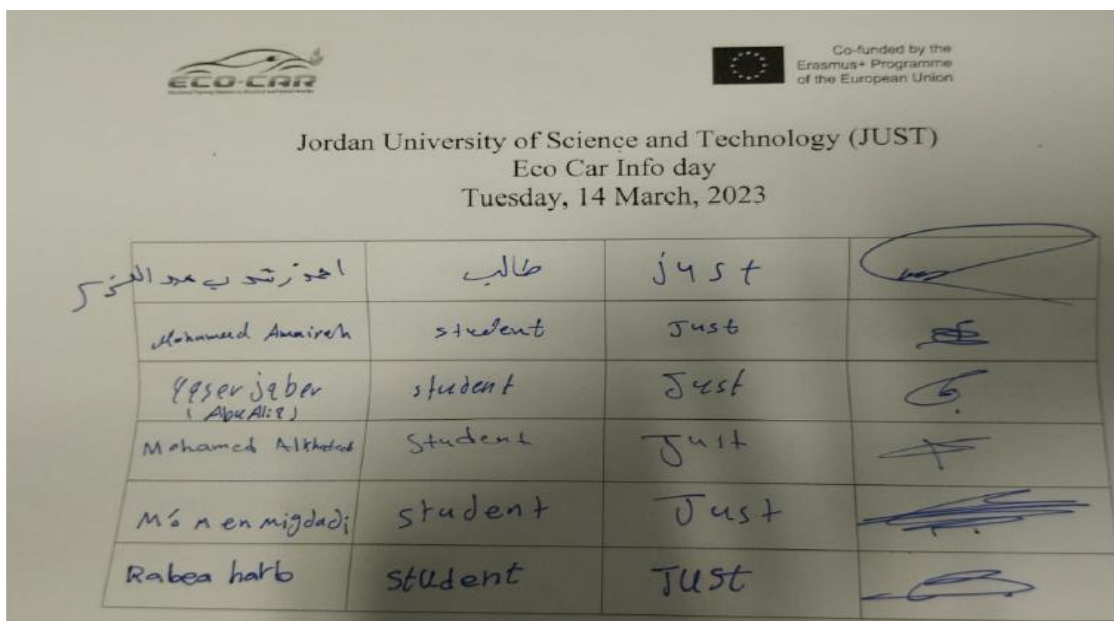 ECO-CAR
Co-funded by the
Erasmus+ Programme
of the European Union
Jordan University of Science and Technology (JUST)
Eco Car Info day
Tuesday, 14 March, 2023
احمد طالب just
Mohamed Amaireh student Just
Yaser jaber student Just
(Abu Alia)
Mohamed Alkhateeb Student Just
Mo'men migdadi student Just
Rabea harb student JUST